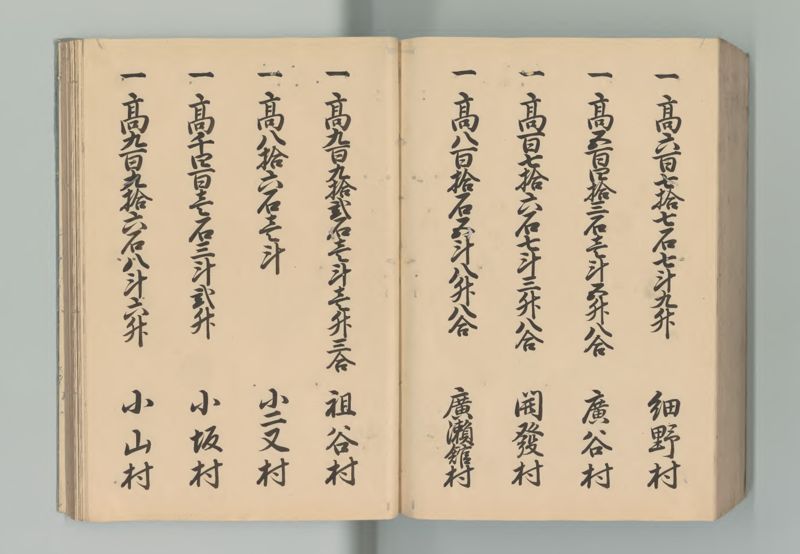 一 高六百七拾七石七斗九升 細野村
一 高五百四拾三石壱斗五升八合 廣谷村
一 高百七拾六石七斗三升八合 開發村
一 高八百拾石五斗八升八合 廣瀬舘村
一 高九百九拾弐石壱斗壱升三合 祖谷村
一 高八拾六石壱斗 小二又村
一 高千四百壱石三斗弐升 小坂村
一 高九百九拾六石八斗六升 小山村